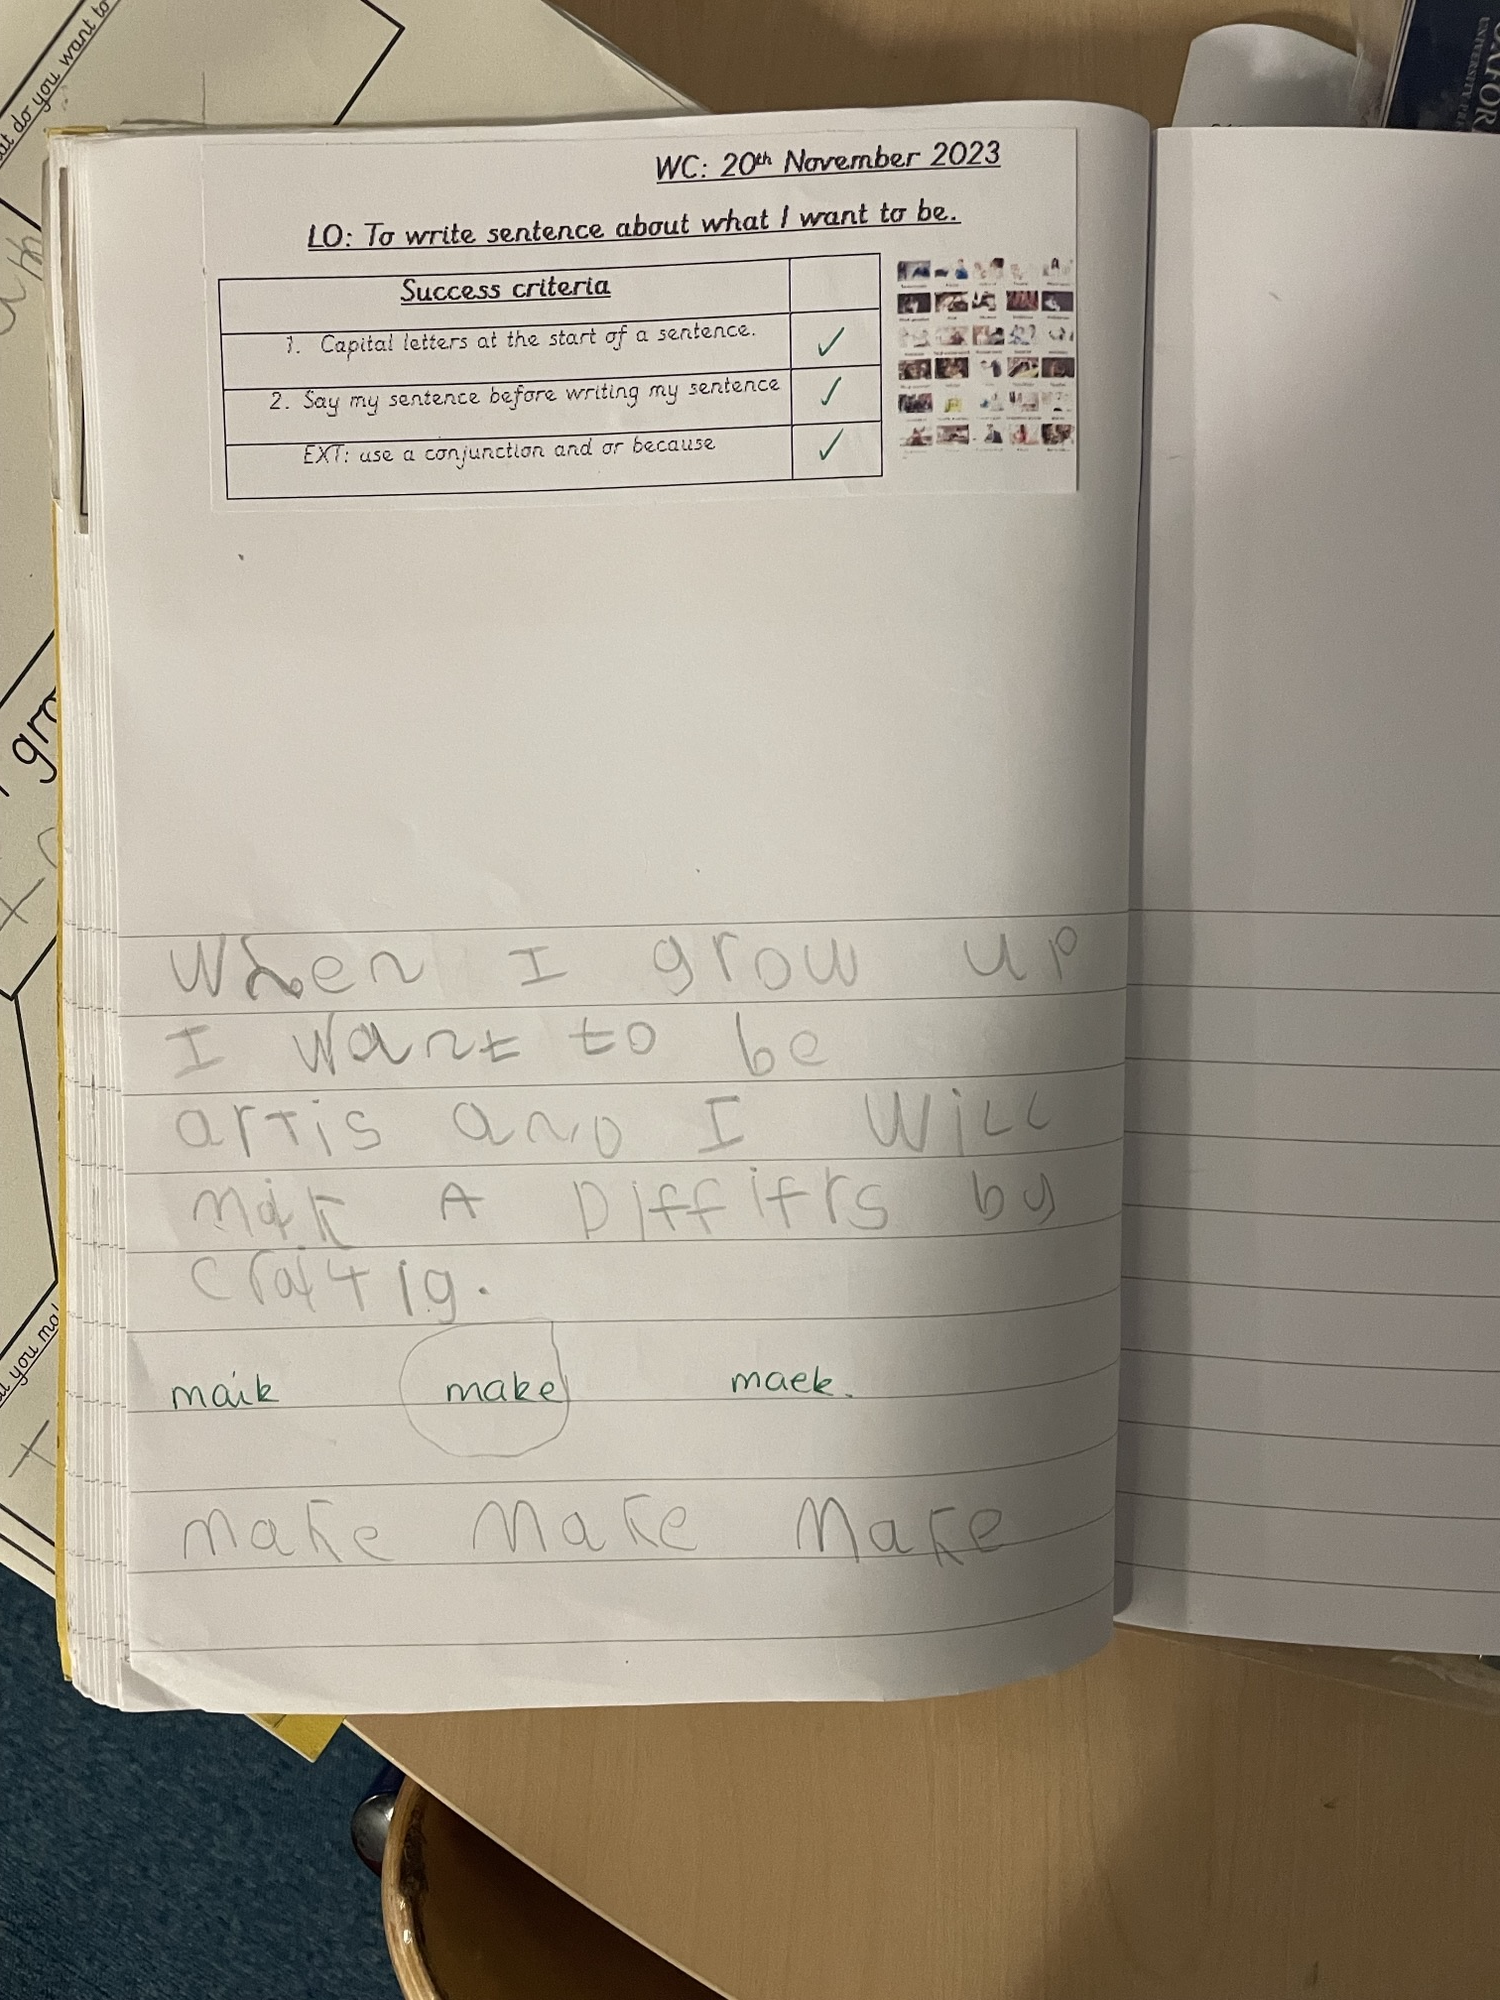 WC: 20th November 2023
LO: To write sentence about what I want to be.
Success criteria
1. Capital letters at the start of a sentence. ✓
2. Say my sentence before writing my sentence ✓
EXT: use a conjunction and or because ✓
When I grow up
I want to be
artis and I Will
maik A Diffitrs by
craftig.
maik make maek.
make Make Make
do you want to
gro
you ma
OXFOR
UNIVERSITY